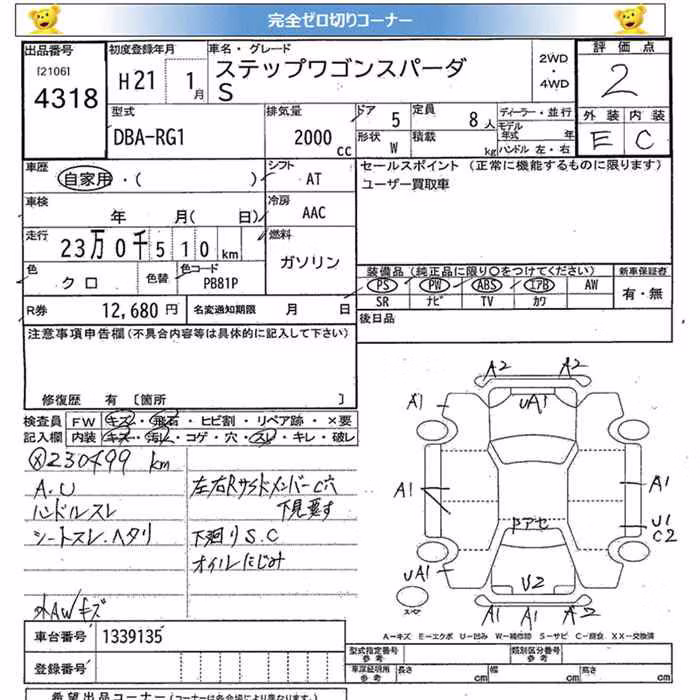 完全ゼロ切りコーナー
出品番号 [2106] 4318
初度登録年月 H21年 1月
車名・グレード ステップワゴンスパーダ S
2WD・4WD
評価点 2
外装 E 内装 C
型式 DBA-RG1
排気量 2000cc
ドア 5
定員 8人
形状 W
積載 kg
ディーラー・並行
モデル年式 年
ハンドル 左・右
車歴 自家用・( )
シフト AT
車検 年 月( 日)
冷房 AAC
走行 23万0千510km
燃料 ガソリン
色 クロ 色替 色コード PB81P
セールスポイント (正常に機能するものに限ります)
ユーザー買取車
装備品(純正品に限り○をつけてください) 新車保証書
PS PW ABS エアB AW 有・無
SR ナビ TV カワ
後日品
R券 12,680円 名変通知期限 月 日
注意事項申告欄(不具合内容等は具体的に記入して下さい)
修復歴 有 [箇所 ]
検査員記入欄
FW キズ・飛石・ヒビ割・リペア跡・×要
内装 キズ・汚レ・コゲ・穴・スレ・キレ・破レ
230499 km
A.U
ハンドルスレ
シートスレ.ヘタリ
左右Rサイドメンバー C穴
下見要す
下廻りS.C
オイルにじみ
社外AWキズ
A2 A2
A1 UA1
A1 A1
ドアセ U1
C2
UA1 U2
スペア A1 A1 A2
A-キズ E-エクボ U-凹み W-補修跡 S-サビ C-腐食 XX-交換済
車台番号 1339135
登録番号
型式指定番号 参考 類別区分番号 参考
車庫証明用 参考 長さ 幅 高さ
希望出品コーナー(コーナーは各会場により異なります。)